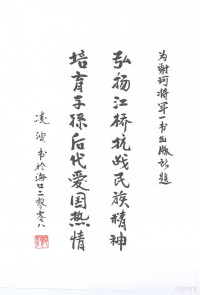 为谢珂将军一书出版敬题
弘扬江桥抗战民族精神
培育子孙后代爱国热情
凌波书于海口二零零八